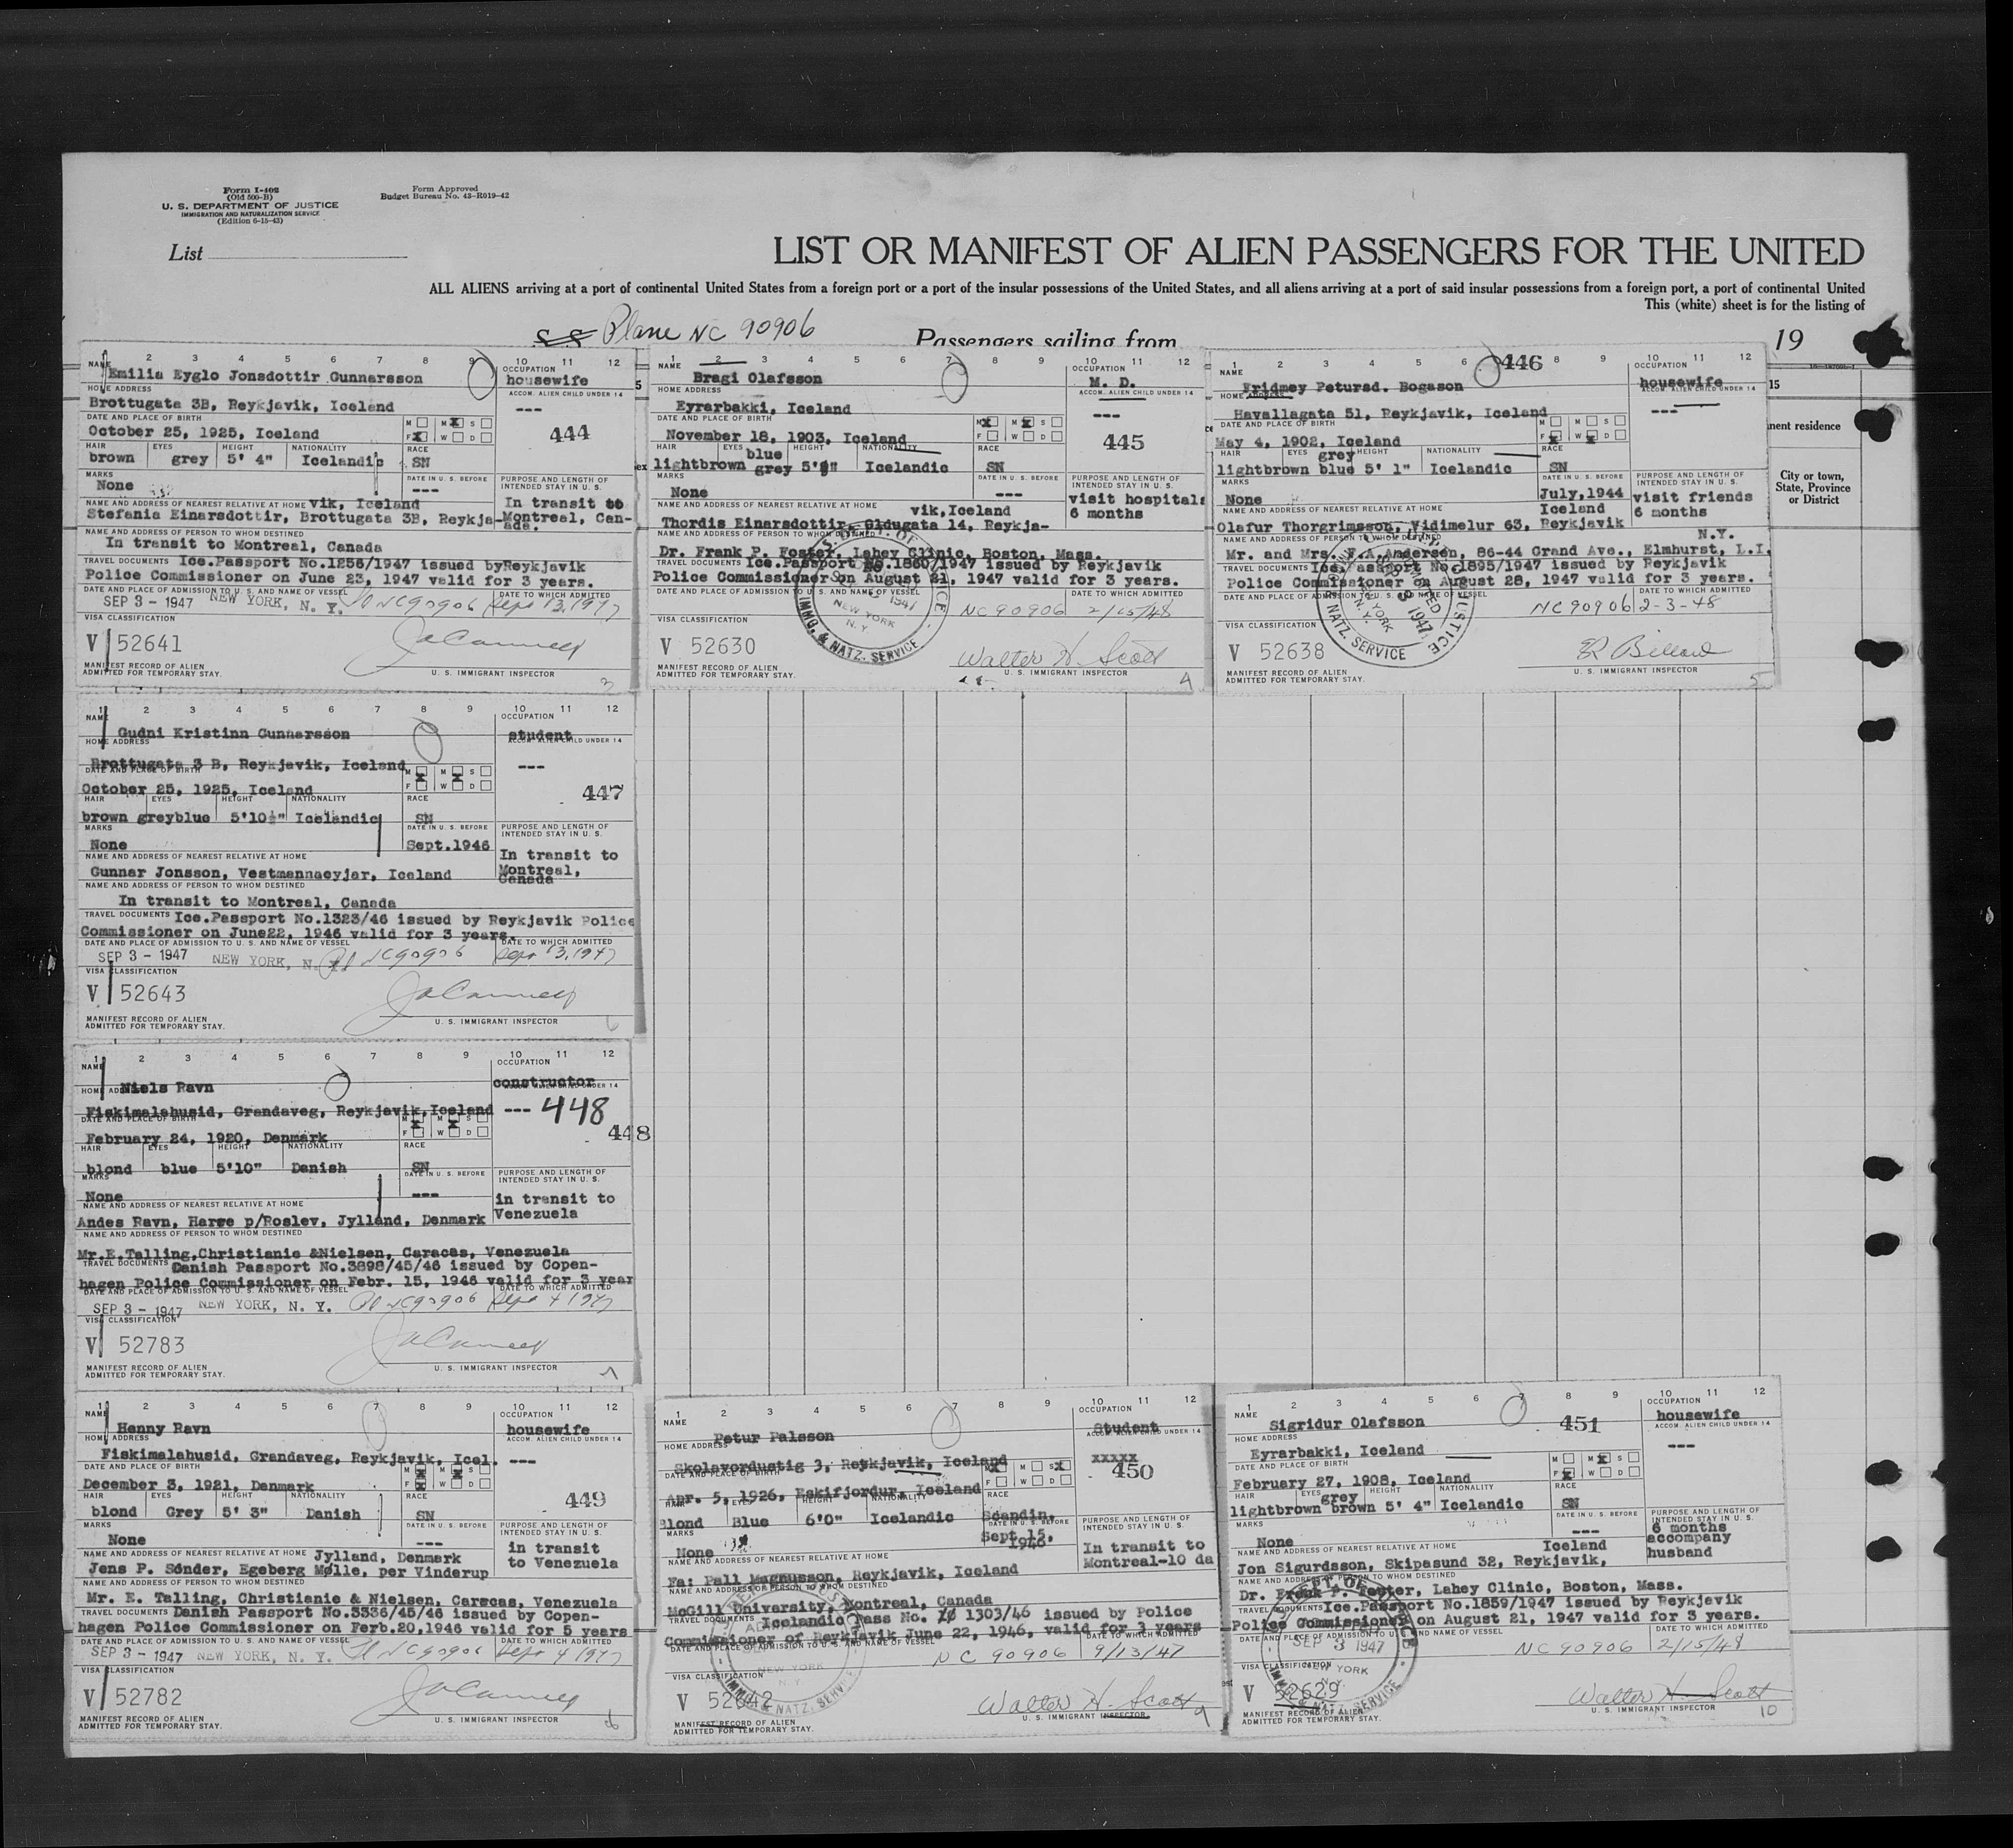 Form I-402
(Old 500-B)
U. S. DEPARTMENT OF JUSTICE
IMMIGRATION AND NATURALIZATION SERVICE
(Edition 6-15-43)
Form Approved
Budget Bureau No. 43-R019-42
List
LIST OR MANIFEST OF ALIEN PASSENGERS FOR THE UNITED
ALL ALIENS arriving at a port of continental United States from a foreign port or a port of the insular possessions of the United States, and all aliens arriving at a port of said insular possessions from a foreign port, a port of continental United
This (white) sheet is for the listing of
S S Plane NC 90906
Passengers sailing from
19
15
nent residence
City or town,
State, Province
or District
1 2 3 4 5 6 7 8 9 10 11 12
NAME
Emilia Eyglo Jonsdottir Gunnarsson
OCCUPATION
housewife
HOME ADDRESS
ACCOM. ALIEN CHILD UNDER 14
Brottugata 3B, Reykjavik, Iceland
---
DATE AND PLACE OF BIRTH
M M X S
October 25, 1925, Iceland
F X W D
444
HAIR EYES HEIGHT NATIONALITY RACE
brown grey 5' 4" Icelandic SN
MARKS
DATE IN U. S. BEFORE
PURPOSE AND LENGTH OF
INTENDED STAY IN U. S.
None
---
NAME AND ADDRESS OF NEAREST RELATIVE AT HOME vik, Iceland
In transit to
Stefania Einarsdottir, Brottugata 3B, Reykja-
Montreal, Can-
ada.
NAME AND ADDRESS OF PERSON TO WHOM DESTINED
In transit to Montreal, Canada
TRAVEL DOCUMENTS Ice.Passport No.1256/1947 issued byReykjavik
Police Commissioner on June 23, 1947 valid for 3 years.
DATE AND PLACE OF ADMISSION TO U. S. AND NAME OF VESSEL
DATE TO WHICH ADMITTED
SEP 3 - 1947 NEW YORK, N. Y. Pl NC90906 Sept 13, 1947
VISA CLASSIFICATION
V 52641
MANIFEST RECORD OF ALIEN
ADMITTED FOR TEMPORARY STAY.
U. S. IMMIGRANT INSPECTOR
3
1 2 3 4 5 6 7 8 9 10 11 12
NAME
Bragi Olafsson
OCCUPATION
M. D.
HOME ADDRESS
ACCOM. ALIEN CHILD UNDER 14
Eyrarbakki, Iceland
---
DATE AND PLACE OF BIRTH
M X M X S
November 18, 1903, Iceland
F W D
445
HAIR EYES HEIGHT NATIONALITY RACE
blue
lightbrown grey Icelandic SN
MARKS
DATE IN U. S. BEFORE
PURPOSE AND LENGTH OF
INTENDED STAY IN U. S.
None
---
visit hospitals
6 months
NAME AND ADDRESS OF NEAREST RELATIVE AT HOME
vik,Iceland
Thordis Einarsdottir, Oldugata 14, Reykja-
NAME AND ADDRESS OF PERSON TO WHOM DESTINED
Dr. Frank P. Foster, Lahey Clinic, Boston, Mass.
TRAVEL DOCUMENTS Ice.Passport No.1860/1947 issued by Reykjavik
Police Commissioner on August 21, 1947 valid for 3 years.
DATE AND PLACE OF ADMISSION TO U. S. AND NAME OF VESSEL
DATE TO WHICH ADMITTED
NC90906 2/15/48
NEW YORK
N. Y.
IMMG. & NATZ. SERVICE
VISA CLASSIFICATION
V 52630
Walter H. Scott
MANIFEST RECORD OF ALIEN
ADMITTED FOR TEMPORARY STAY.
U. S. IMMIGRANT INSPECTOR
4
1 2 3 4 5 6 446 8 9 10 11 12
NAME
Fridmey Petursd. Bogason
OCCUPATION
housewife
HOME ADDRESS
ACCOM. ALIEN CHILD UNDER 14
Havallagata 51, Reykjavik, Iceland
---
DATE AND PLACE OF BIRTH
M M S
May 4, 1902, Iceland
F X W X D
HAIR EYES HEIGHT NATIONALITY RACE
grey
lightbrown blue 5' 1" Icelandic SN
MARKS
DATE IN U. S. BEFORE
PURPOSE AND LENGTH OF
INTENDED STAY IN U. S.
None
July,1944
visit friends
6 months
NAME AND ADDRESS OF NEAREST RELATIVE AT HOME
Iceland
Olafur Thorgrimsson, Vidimelur 63, Reykjavik
NAME AND ADDRESS OF PERSON TO WHOM DESTINED
N.Y.
Mr. and Mrs. F.A.Andersen, 86-44 Grand Ave., Elmhurst, L.I.
TRAVEL DOCUMENTS Ice. Passport No.1895/1947 issued by Reykjavik
Police Commissioner on August 28, 1947 valid for 3 years.
DATE AND PLACE OF ADMISSION TO U. S. AND NAME OF VESSEL
DATE TO WHICH ADMITTED
NC90906 2-3-48
VISA CLASSIFICATION
V 52638
MANIFEST RECORD OF ALIEN
ADMITTED FOR TEMPORARY STAY.
U. S. IMMIGRANT INSPECTOR
5
1 2 3 4 5 6 7 8 9 10 11 12
NAME
Gudni Kristinn Gunnarsson
OCCUPATION
student
HOME ADDRESS
ACCOM. ALIEN CHILD UNDER 14
Brottugata 3 B, Reykjavik, Iceland
---
DATE AND PLACE OF BIRTH
M X M X S
October 25, 1925, Iceland
F W D
447
HAIR EYES HEIGHT NATIONALITY RACE
brown greyblue 5'10½" Icelandic SN
MARKS
DATE IN U. S. BEFORE
PURPOSE AND LENGTH OF
INTENDED STAY IN U. S.
None
Sept.1946
NAME AND ADDRESS OF NEAREST RELATIVE AT HOME
In transit to
Montreal,
Canada
Gunnar Jonsson, Vestmannaeyjar, Iceland
NAME AND ADDRESS OF PERSON TO WHOM DESTINED
In transit to Montreal, Canada
TRAVEL DOCUMENTS Ice.Passport No.1323/46 issued by Reykjavik Police
Commissioner on June22, 1946 valid for 3 years.
DATE AND PLACE OF ADMISSION TO U. S. AND NAME OF VESSEL
DATE TO WHICH ADMITTED
SEP 3 - 1947 NEW YORK, N. Pl NC90906 Sept 13, 1947
VISA CLASSIFICATION
V 52643
MANIFEST RECORD OF ALIEN
ADMITTED FOR TEMPORARY STAY.
U. S. IMMIGRANT INSPECTOR
6
1 2 3 4 5 6 7 8 9 10 11 12
NAME
OCCUPATION
constructor
HOME ADDRESS
Niels Ravn
ACCOM. ALIEN CHILD UNDER 14
Fiskimalahusid, Grandaveg, Reykjavik,Iceland
--- 448
DATE AND PLACE OF BIRTH
M X M X S
February 24, 1920, Denmark
F W D
448
HAIR EYES HEIGHT NATIONALITY RACE
blond blue 5'10" Danish SN
MARKS
DATE IN U. S. BEFORE
PURPOSE AND LENGTH OF
INTENDED STAY IN U. S.
None
---
in transit to
Venezuela
NAME AND ADDRESS OF NEAREST RELATIVE AT HOME
Andes Ravn, Harre p/Roslev, Jylland, Denmark
NAME AND ADDRESS OF PERSON TO WHOM DESTINED
Mr.E.Talling,Christianie &Nielsen, Caracas, Venezuela
TRAVEL DOCUMENTS Danish Passport No.3898/45/46 issued by Copen-
hagen Police Commissioner on Febr. 15, 1946 valid for 3 year
DATE AND PLACE OF ADMISSION TO U. S. AND NAME OF VESSEL
DATE TO WHICH ADMITTED
SEP 3 - 1947 NEW YORK, N. Y. Pl NC90906 Sept 4 1947
VISA CLASSIFICATION
V 52783
MANIFEST RECORD OF ALIEN
ADMITTED FOR TEMPORARY STAY.
U. S. IMMIGRANT INSPECTOR
7
1 2 3 4 5 6 7 8 9 10 11 12
NAME
Henny Ravn
OCCUPATION
housewife
HOME ADDRESS
ACCOM. ALIEN CHILD UNDER 14
Fiskimalahusid, Grandaveg, Reykjavik, Icel.
---
DATE AND PLACE OF BIRTH
M X M X S
December 3, 1921, Denmark
F X W D
449
HAIR EYES HEIGHT NATIONALITY RACE
blond Grey 5' 3" Danish SN
MARKS
DATE IN U. S. BEFORE
PURPOSE AND LENGTH OF
INTENDED STAY IN U. S.
None
---
in transit
to Venezuela
NAME AND ADDRESS OF NEAREST RELATIVE AT HOME Jylland, Denmark
Jens P. Sønder, Egeberg Mølle, per Vinderup
NAME AND ADDRESS OF PERSON TO WHOM DESTINED
Mr. E. Talling, Christianie & Nielsen, Caracas, Venezuela
TRAVEL DOCUMENTS Danish Passport No.3336/45/46 issued by Copen-
hagen Police Commissioner on Ferb.20,1946 valid for 5 years
DATE AND PLACE OF ADMISSION TO U. S. AND NAME OF VESSEL
DATE TO WHICH ADMITTED
SEP 3 - 1947 NEW YORK, N. Y. Pl NC90906 Sept 4 1947
VISA CLASSIFICATION
V 52782
MANIFEST RECORD OF ALIEN
ADMITTED FOR TEMPORARY STAY.
U. S. IMMIGRANT INSPECTOR
8
1 2 3 4 5 6 7 8 9 10 11 12
NAME
Petur Palsson
OCCUPATION
Student
HOME ADDRESS
ACCOM. ALIEN CHILD UNDER 14
Skolavordustig 3, Reykjavik, Iceland
xxxxx
DATE AND PLACE OF BIRTH
M X M S X
F W D
450
Apr. 5, 1926, Eskifjordur, Iceland
HAIR EYES HEIGHT NATIONALITY RACE
Blond Blue 6'0" Icelandic Scandin.
MARKS
DATE IN U. S. BEFORE
PURPOSE AND LENGTH OF
INTENDED STAY IN U. S.
None
Sept 15,
1946
In transit to
Montreal-10 da
NAME AND ADDRESS OF NEAREST RELATIVE AT HOME
Fa: Pall Magnusson, Reykjavik, Iceland
NAME AND ADDRESS OF PERSON TO WHOM DESTINED
McGill University, Montreal, Canada
TRAVEL DOCUMENTS Icelandic Pass No. 1303/46 issued by Police
Commissioner of Reykjavik June 22, 1946, valid for 3 years
DATE AND PLACE OF ADMISSION TO U. S. AND NAME OF VESSEL
DATE TO WHICH ADMITTED
NC 90906 9/13/47
VISA CLASSIFICATION
V 52642
Walter H. Scott
MANIFEST RECORD OF ALIEN
ADMITTED FOR TEMPORARY STAY.
U. S. IMMIGRANT INSPECTOR
9
1 2 3 4 5 6 7 8 9 10 11 12
NAME
Sigridur Olafsson
451
OCCUPATION
housewife
HOME ADDRESS
ACCOM. ALIEN CHILD UNDER 14
Eyrarbakki, Iceland
---
DATE AND PLACE OF BIRTH
M M X S
February 27, 1908, Iceland
F X W D
HAIR EYES HEIGHT NATIONALITY RACE
grey
lightbrown brown 5' 4" Icelandic SN
MARKS
DATE IN U. S. BEFORE
PURPOSE AND LENGTH OF
INTENDED STAY IN U. S.
None
---
6 months
accompany
husband
NAME AND ADDRESS OF NEAREST RELATIVE AT HOME
Iceland
Jon Sigurdsson, Skipasund 32, Reykjavik,
NAME AND ADDRESS OF PERSON TO WHOM DESTINED
Dr. Frank P. Foster, Lahey Clinic, Boston, Mass.
TRAVEL DOCUMENTS Ice.Passport No.1859/1947 issued by Reykjavik
Police Commissioner on August 21, 1947 valid for 3 years.
DATE AND PLACE OF ADMISSION TO U. S. AND NAME OF VESSEL
DATE TO WHICH ADMITTED
SEP 3 1947
NC90906 2/15/48
VISA CLASSIFICATION
NEW YORK
V 52629
Walter H. Scott
MANIFEST RECORD OF ALIEN
ADMITTED FOR TEMPORARY STAY.
U. S. IMMIGRANT INSPECTOR
10